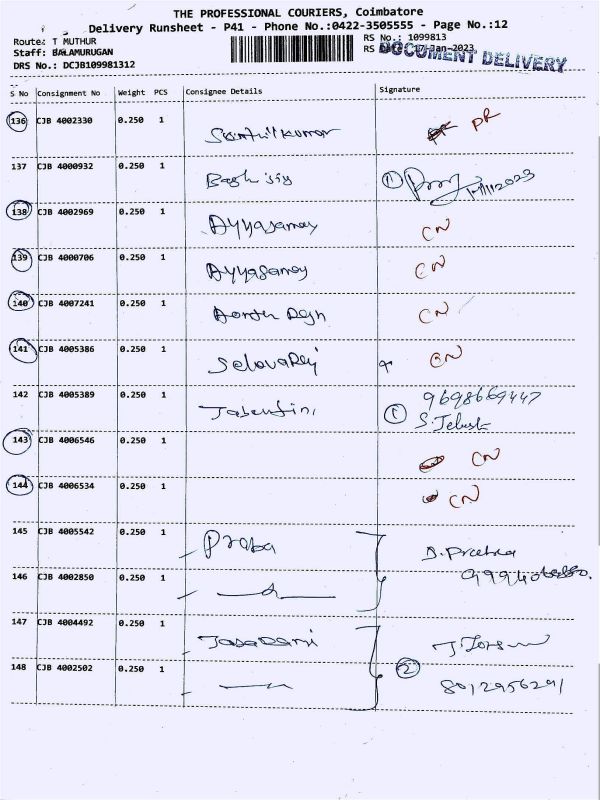 THE PROFESSIONAL COURIERS, Coimbatore
Delivery Runsheet - P41 - Phone No.:0422-3505555 - Page No.:12
Route: T MUTHUR
RS No.: 1099813
Staff: BALAMURUGAN
RS 17-Jan-2023
DOCUMENT DELIVERY
DRS No.: DCJB109981312
S No Consignment No Weight PCS Consignee Details Signature
136 CJB 4002330 0.250 1 PR
137 CJB 4000932 0.250 1 1
138 CJB 4002969 0.250 1 Ayyasamy CN
139 CJB 4000706 0.250 1 Ayyasamy CN
140 CJB 4007241 0.250 1 CN
141 CJB 4005386 0.250 1 CN
142 CJB 4005389 0.250 1 1 9698669447
143 CJB 4006546 0.250 1 CN
144 CJB 4006534 0.250 1 CN
145 CJB 4005542 0.250 1 Praba
146 CJB 4002850 0.250 1
147 CJB 4004492 0.250 1
148 CJB 4002502 0.250 1 2 8012956291